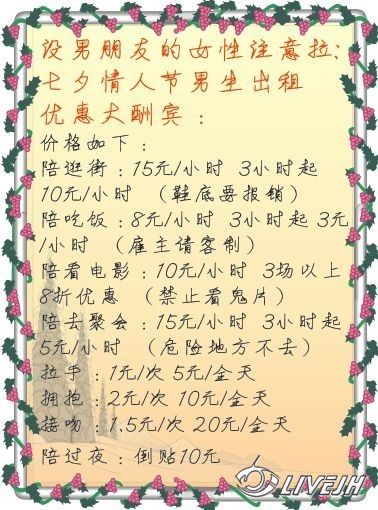 没男朋友的女性注意拉:
七夕情人节男生出租
优惠大酬宾：
价格如下：
陪逛街：15元/小时 3小时起
10元/小时 （鞋底要报销）
陪吃饭：8元/小时 3小时起 3元
/小时 （雇主请客制）
陪看电影：10元/小时 3场以上
8折优惠 （禁止看鬼片）
陪去聚会：15元/小时 3小时起
5元/小时 （危险地方不去）
拉手：1元/次 5元/全天
拥抱：2元/次 10元/全天
接吻：1.5元/次 20元/全天
陪过夜：倒贴10元
LIVEJH